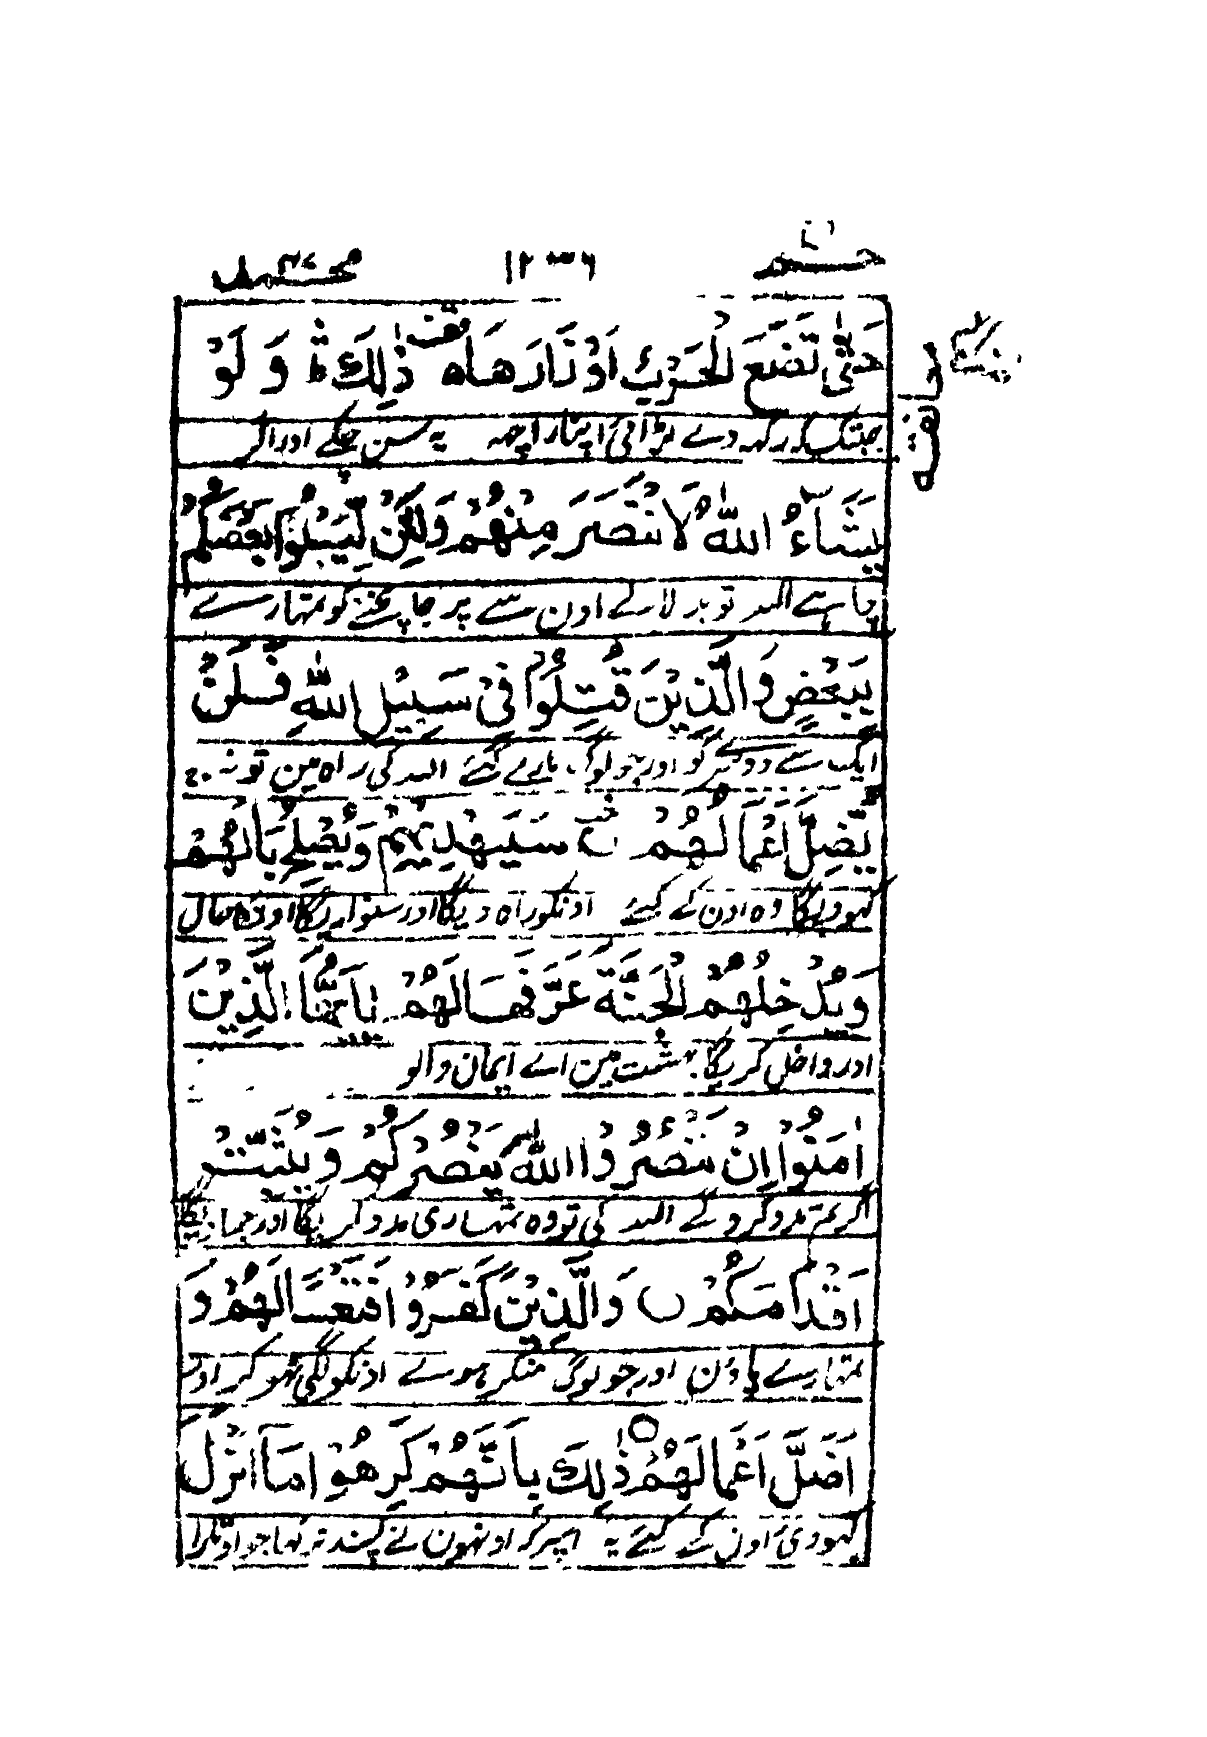 حٰمٓ ١٢٣٦ محمد ٤٧
حَتّٰى تَضَعَ الْحَرْبُ اَوْزَارَهَا ۛ ذٰلِكَ ۛ وَلَوْ
جبتک کہ رکھدے لڑائی اپنا راچھہ یہ سن چکے اور اگر
يَشَآءُ اللّٰهُ لَانْتَصَرَ مِنْهُمْ وَلٰكِنْ لِّيَبْلُوَا۟ بَعْضَكُمْ
چاہے اللہ تو بدلا لے اون سے پر جانچنے کو تمہارے
بِبَعْضٍ وَالَّذِيْنَ قُتِلُوْا فِيْ سَبِيْلِ اللّٰهِ فَلَنْ
ایک سے دوسرے کو اور جو لوگ مارے گئے اللہ کی راہ مین تو نہ
يُّضِلَّ اَعْمَالَهُمْ سَيَهْدِيْهِمْ وَيُصْلِحُ بَالَهُمْ
کھوویگا وہ اون کے کئے اونکو راہ دیگا اور سنواریگا اونکا حال
وَيُدْخِلُهُمُ الْجَنَّةَ عَرَّفَهَا لَهُمْ يٰٓاَيُّهَا الَّذِيْنَ
اور داخل کریگا بہشت مین اے ایمان والو
اٰمَنُوْٓا اِنْ تَنْصُرُوا اللّٰهَ يَنْصُرْكُمْ وَيُثَبِّتْ
اگر تم مدد کروگے اللہ کی تو وہ تمہاری مدد کریگا اور جماویگا
اَقْدَامَكُمْ وَالَّذِيْنَ كَفَرُوْا فَتَعْسًا لَّهُمْ وَ
تمہارے پاؤن اور جو لوگ منکر ہوے اونکو لگی ٹھوکر اور
اَضَلَّ اَعْمَالَهُمْ ذٰلِكَ بِاَنَّهُمْ كَرِهُوْا مَآ اَنْزَلَ
کھودی اون کے کئے یہ اسپر کہ اونہون نے پسند نہ رکھا جو اوتارا